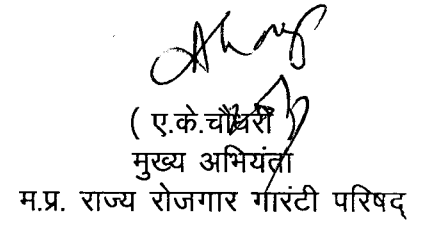 ( ए.के.चौधरी
मुख्य अभियंता
म.प्र. राज्य रोजगार गारंटी परिषद्